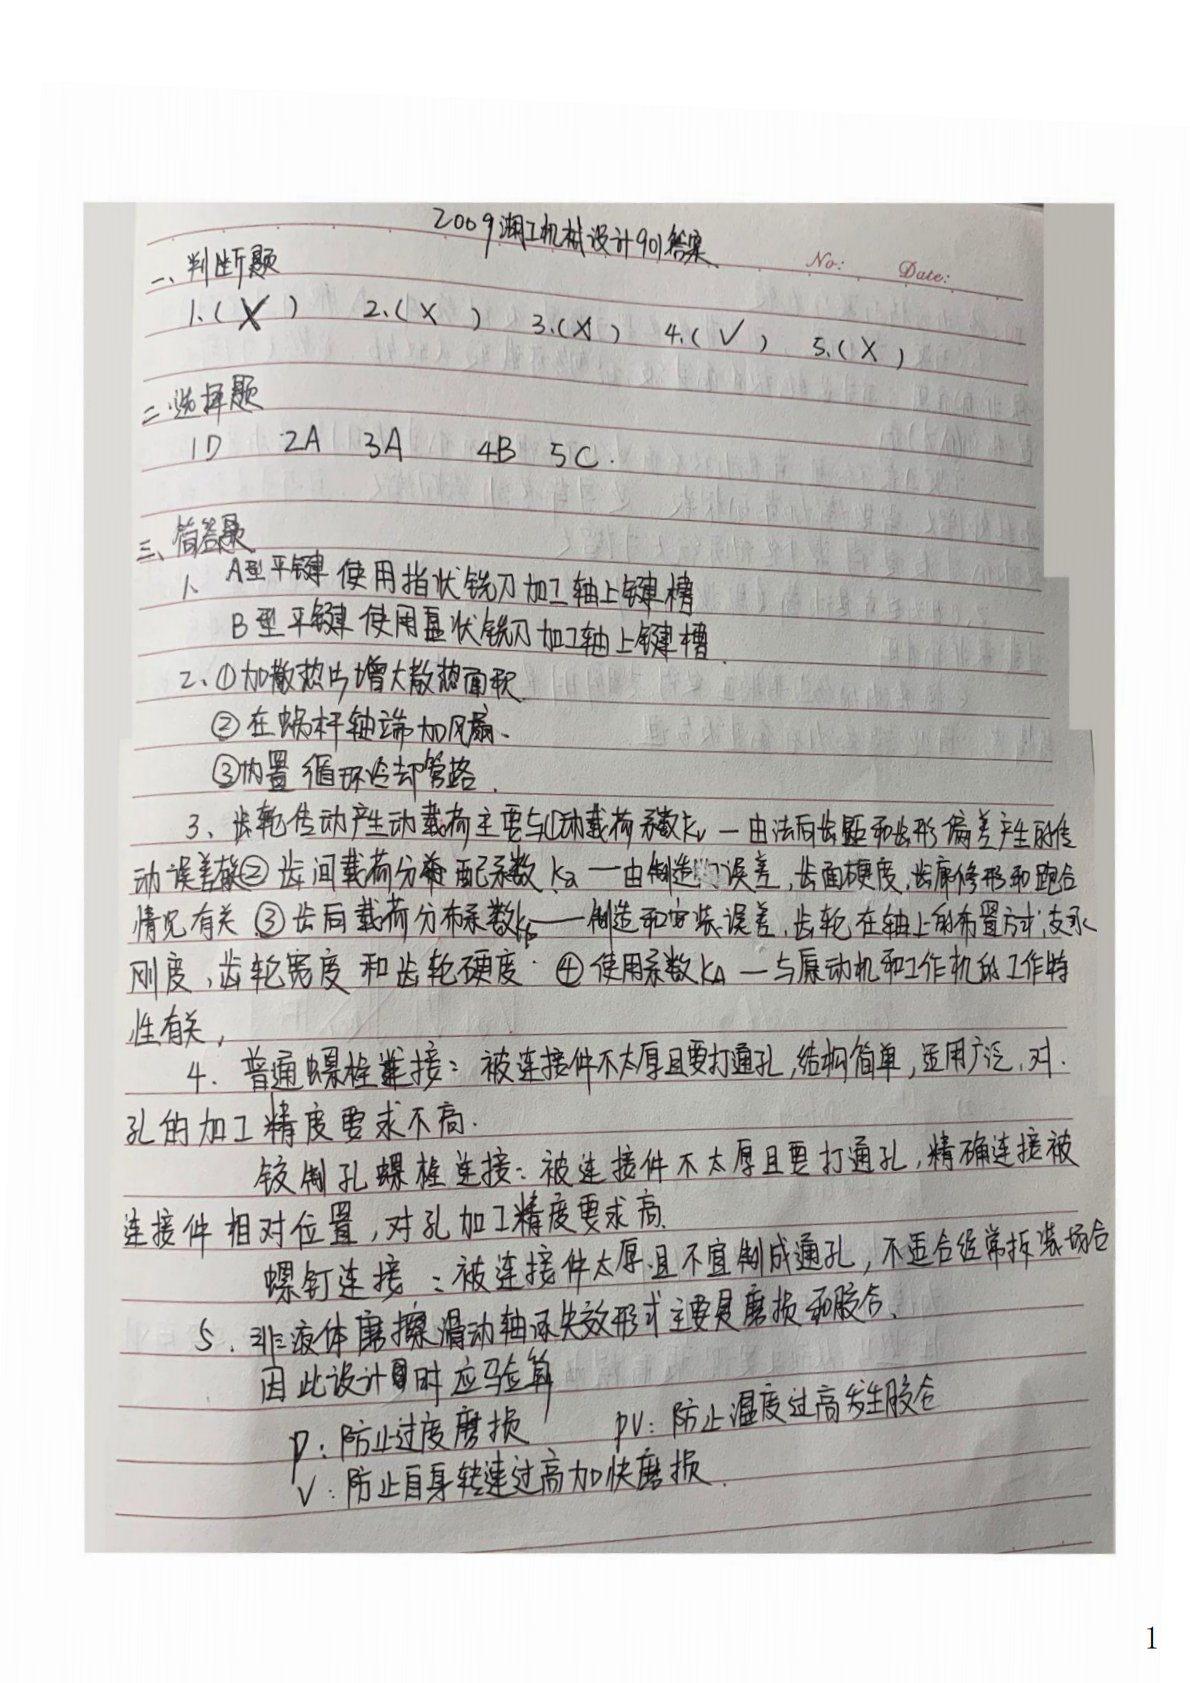 2009湖工机械设计901答案
No: Date:
一、判断题
1.(X) 2.(X) 3.(X) 4.(✓) 5.(X)
二.选择题
1D 2A 3A 4B 5C.
三、简答题
1、A型平键使用指状铣刀加工轴上键槽
B型平键使用盘状铣刀加工轴上键槽.
2、①加散热片增大散热面积
②在蜗杆轴端加风扇、
③内置循环冷却管路.
3、齿轮传动产生动载荷主要与①动载荷系数Kv—由法向齿距和齿形偏差产生的传
动误差②齿间载荷分配系数Ka—由制造误差,齿面硬度,齿廓修形和跑合
情况有关③齿向载荷分布系数Kβ—制造和安装误差,齿轮在轴上的布置方式,支承
刚度,齿轮宽度和齿轮硬度④使用系数KA—与原动机和工作机的工作特
性有关,
4.普通螺栓连接:被连接件不太厚且要打通孔,结构简单,适用广泛,对
孔的加工精度要求不高.
铰制孔螺栓连接:被连接件不太厚且要打通孔,精确连接被
连接件相对位置,对孔加工精度要求高.
螺钉连接:被连接件太厚且不宜制成通孔,不适合经常拆装场合
5.非液体磨擦滑动轴承失效形式主要是磨损和胶合.
因此设计时应验算
p:防止过度磨损 pv:防止温度过高发生胶合
v:防止自身转速过高加快磨损.
1